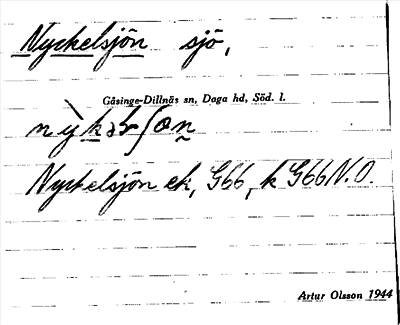 Nyckelsjön sjö,
Gåsinge-Dillnäs sn, Daga hd, Söd. l.
Nyckelsjön ek, G66, k G66 N.O.
Artur Olsson 1944